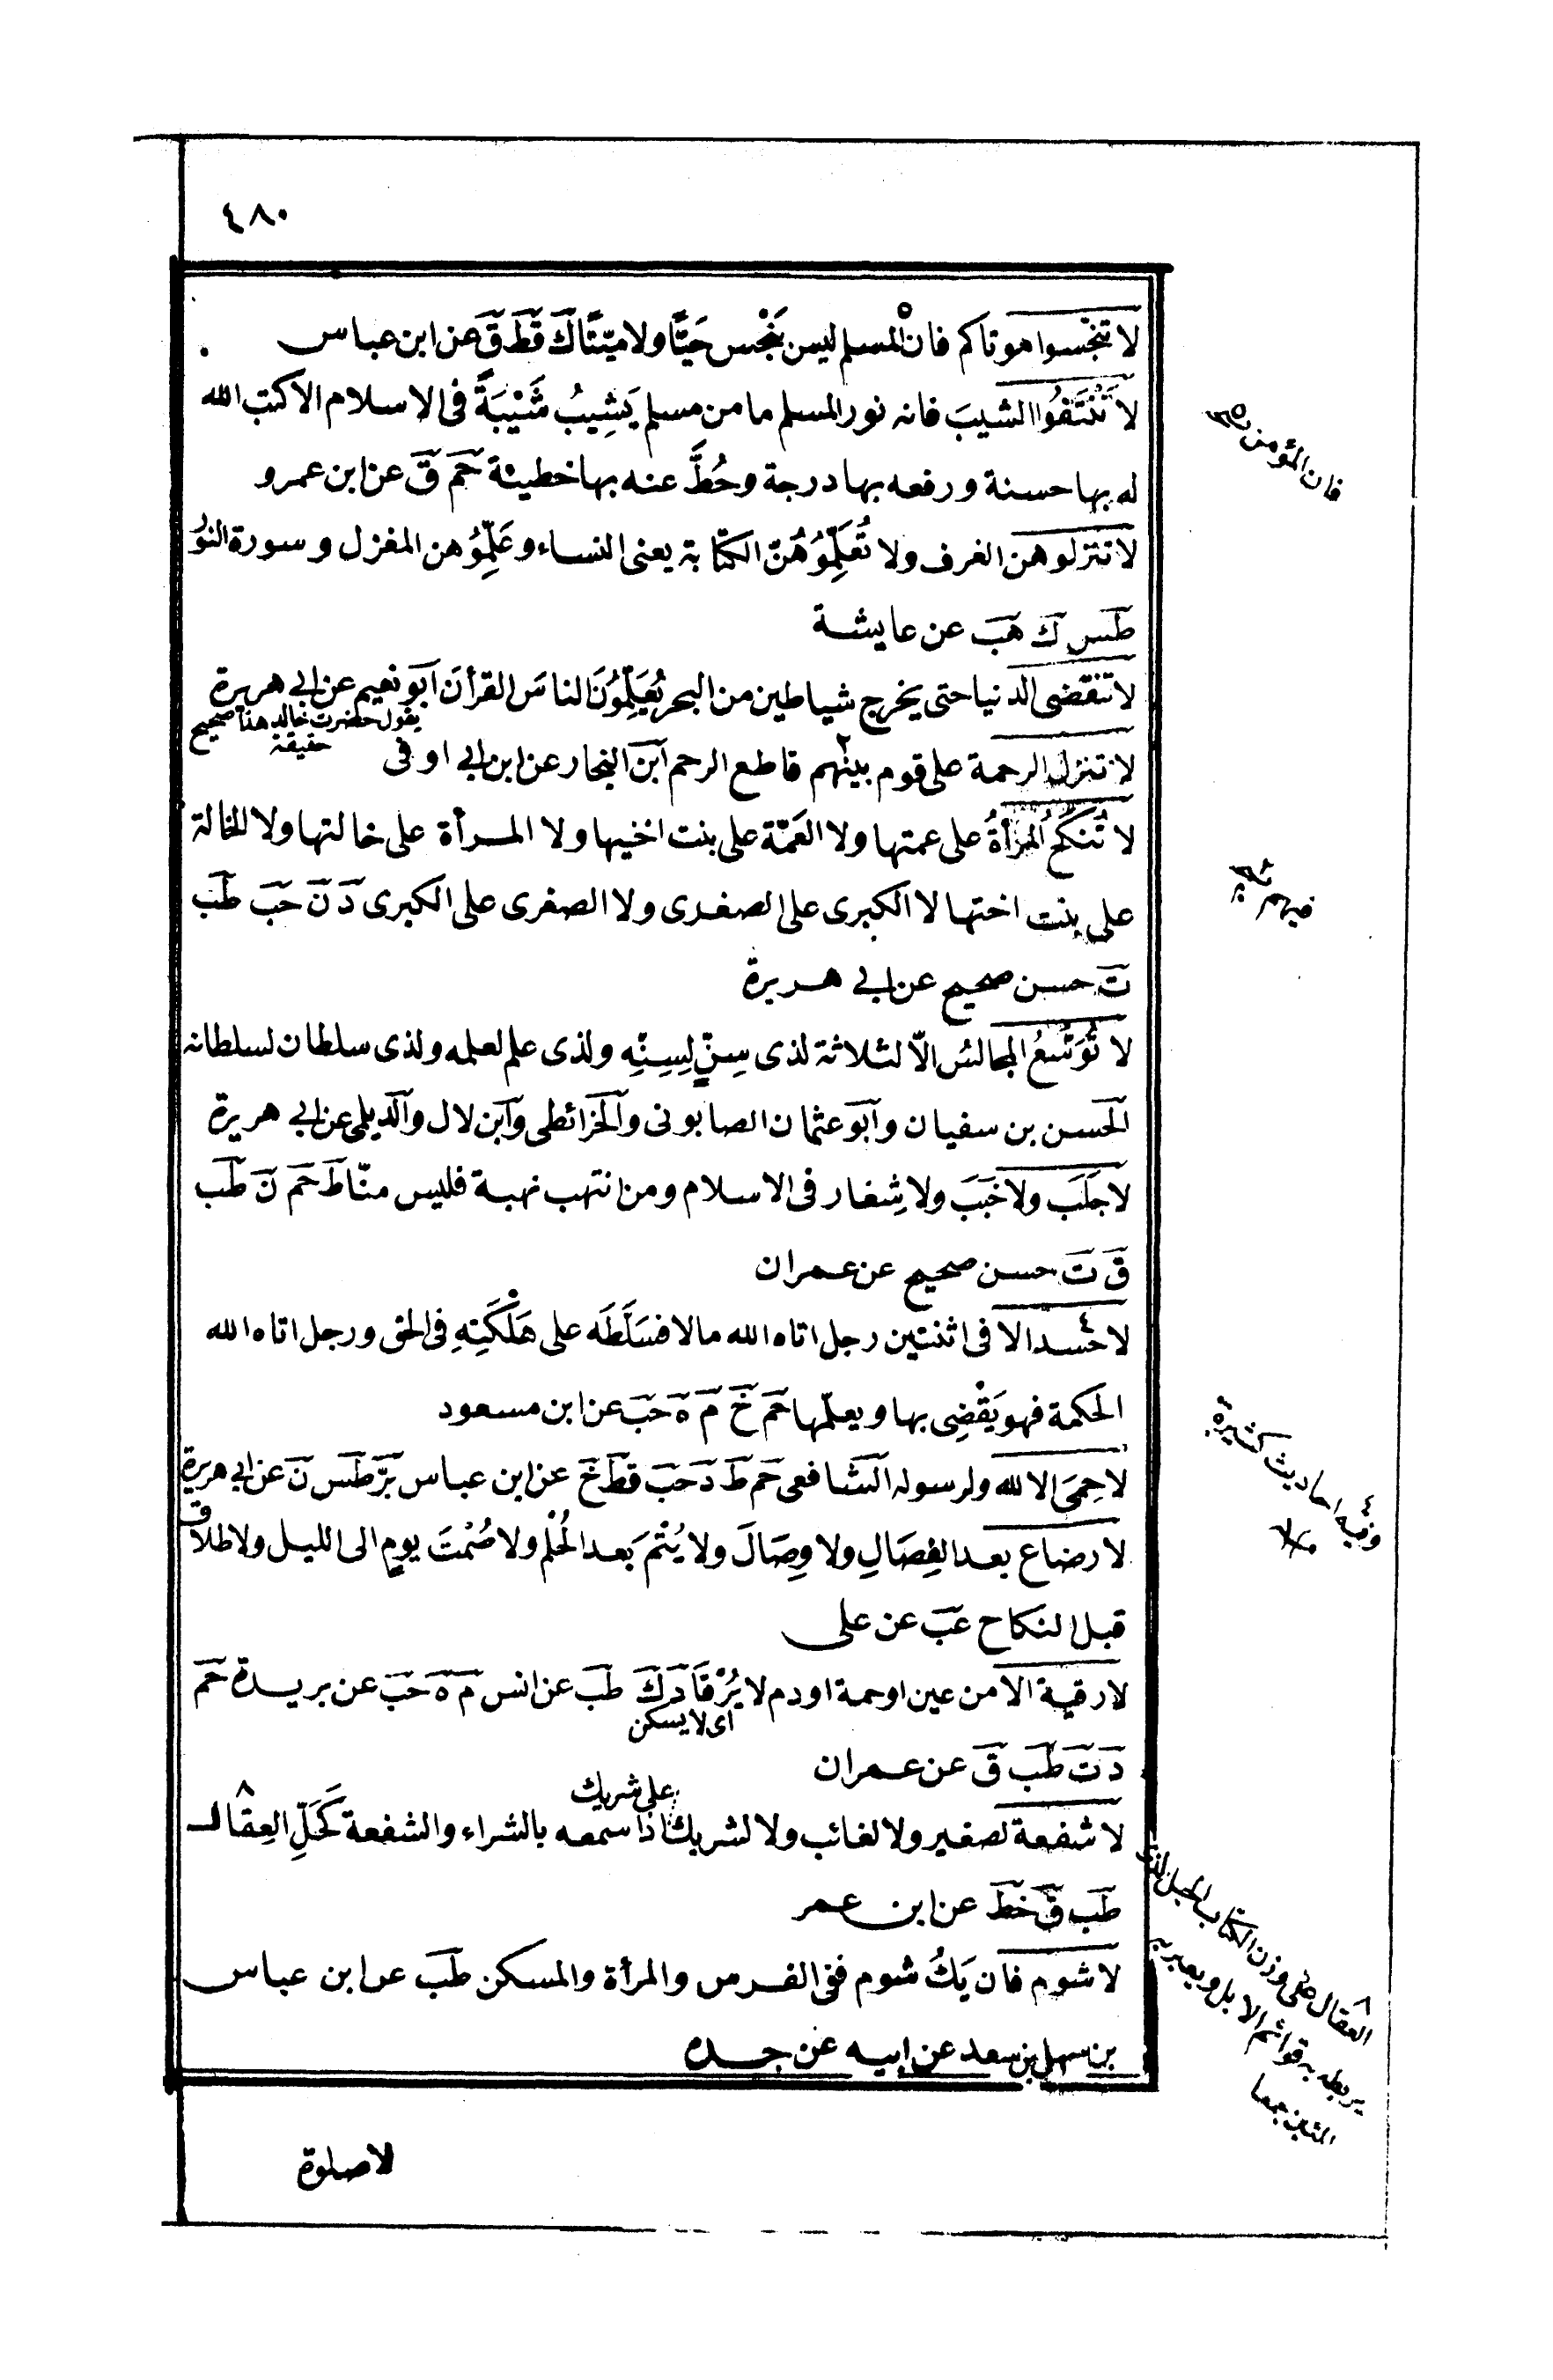 ٤٨٠
لا تنجّسوا موتاكم فان المسلم ليس بَنْجس حَيًّا ولا ميّتًا كَ قَطَ قَ عن ابن عباس
لا تَنْتَفُوا الشيبَ فانه نور المسلم ما من مسلم يَشِيبُ شَيْبَةً فى الاسلام الا كتب الله
له بها حسنة ورفعه بها درجة وحُطَّ عنه بها خطيئة حَم قَ عن ابن عمرو
لا تنزلوهن الغرف ولا تُعَلِّمُوهُنّ الكتابة يعنى النساء وعَلِّمُوهن المغزل وسورة النور
طَس كَ هَب عن عايشة
لا تنقضى الدنيا حتى يخرج شياطين من البحر يُعَلِّمُونَ الناسَ القرأنَ اَبو نعيم عن ابى هريرة
يقول حضرت خالد هذا صحيح
حقيقة
لا تنزل الرحمة على قوم بينهم قاطع الرحم اَبن النجار عن ابن ابى اوفى
لا تُنكَحُ المرأةُ على عمتها ولا العَمّة على بنت اخيها ولا المرأة على خالتها ولا الخالة
على بنت اختها لا الكبرى على الصغرى ولا الصغرى على الكبرى دَ نَ حَبَ طَب
تَ حسن صحيح عن ابى هريرة
لا تُوَسَّعُ المجالسُ الاّ لثلاثة لذى سِنٍّ لِسِنِّهِ ولذى علم لعلمه ولذى سلطان لسلطانه
اَلحسن بن سفيان واَبو عثمان الصابونى واَلخرائطى واَبن لال واَلديلمى عن ابى هريرة
لا جَلَبَ ولا جَنَبَ ولا شِغار فى الاسلام ومن انتهب نهبة فليس منّا طَ حَم نَ طَب
قَ تَ حسن صحيح عن عمران
لا حَسد الا فى اثنتين رجل اتاه الله مالا فسَلَّطَه على هَلَكَتِهِ فى الحق ورجل اتاه الله
الحكمة فهو يَقْضِى بها ويعلّمها حَم خَ مَ هَ حَب عن ابن مسعود
لا حِمَى الا لله ولرسوله اَلشافعى حَم طَ دَ حَبَ قطَ خَ عن ابن عباس بَزّ طَس نَ عن ابى هريرة
لا رضاع بعد الفِصَالِ ولا وِصَالَ ولا يُتْمَ بَعد الحُلْم ولا صُمْتَ يومٍ الى الليل ولا طلاق
قبل النكاح عَبَ عن على
لا رقية الا من عين او حمة او دم لا يُرْقَا دَ كَ طَب عن انس مَ هَ حَبَ عن بريدة حَم
اى لا يسكن
دَ تَ طَب قَ عن عمران
على شريك
لا شفعة لصغير ولا لغائب ولا لشريك اذا سمعه بالشراء والشفعة كَحَلِّ العِقَال
طَب قَ خطَ عن ابن عمر
لا شوم فان يَكُ شوم ففى الفرس والمرأة والمسكن طَب عن ابن عباس
بن سهل بن سعد عن ابيه عن جده
لا صلوة
فان المؤمن
فيهم
٤ وفيه احاديث كثيرة
٨ العقال على وزن الكتاب الحبل الذى
يربط به قوائم الابل ويعبر به